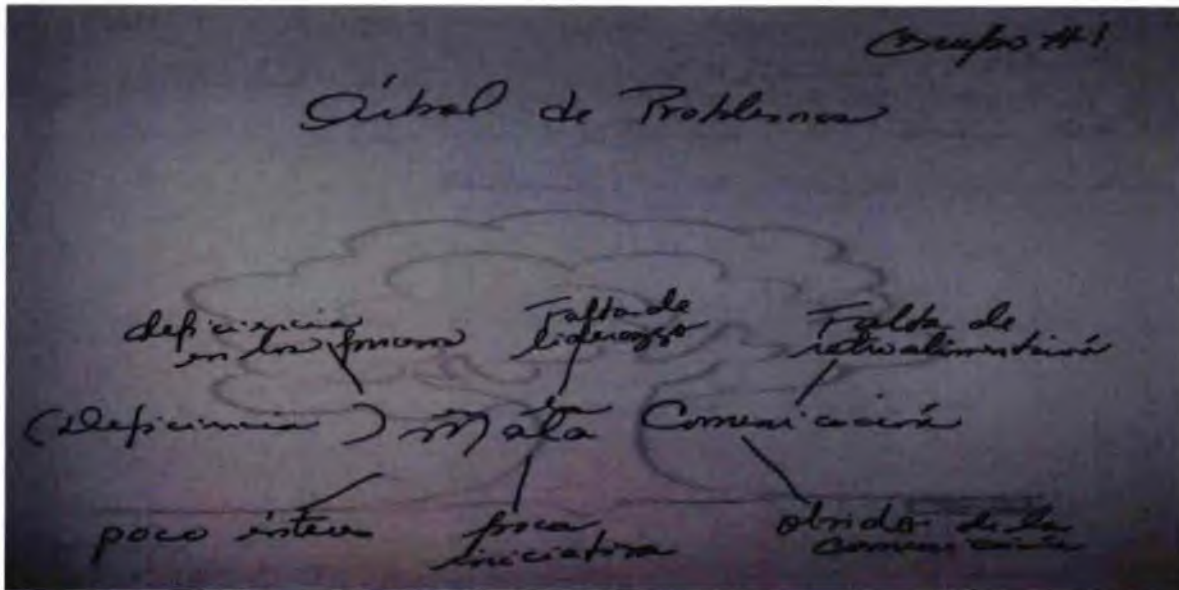 Grupo #1
Árbol de Problemas
deficiencia
en los
Falta de
liderazgo
Falta de
retroalimentación
(Deficiencia ) Mala Comunicación
en la
poco interes
poca
iniciativa
de la
comunicación